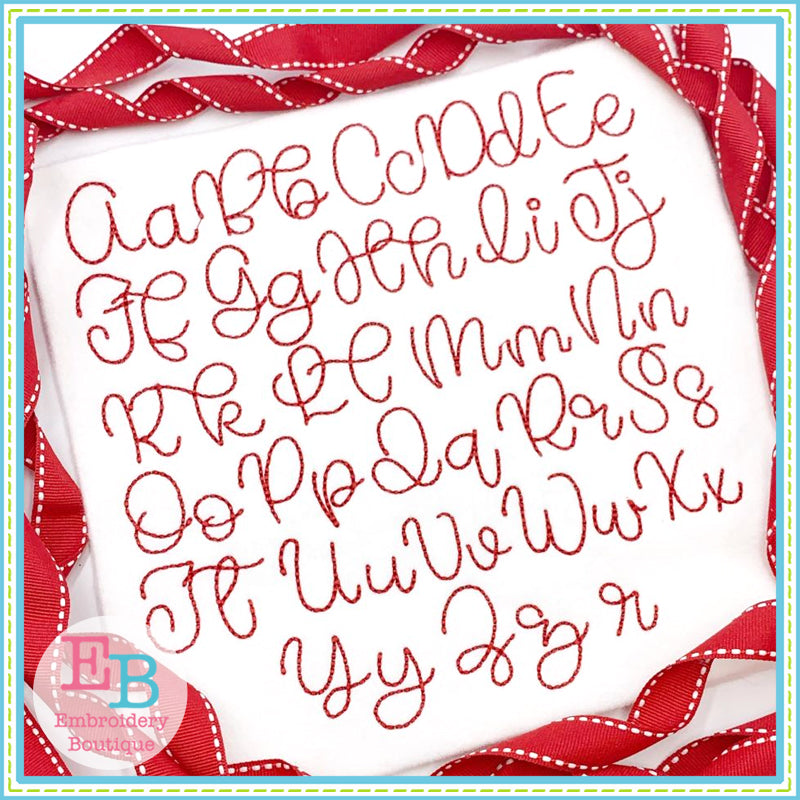 Aa Bb Cc Dd Ee
Ff Gg Hh Ii Jj
Kk Ll Mm Nn
Oo Pp Qq Rr Ss
Tt Uu Vv Ww Xx
Yy Zz r
EB
Embroidery
Boutique